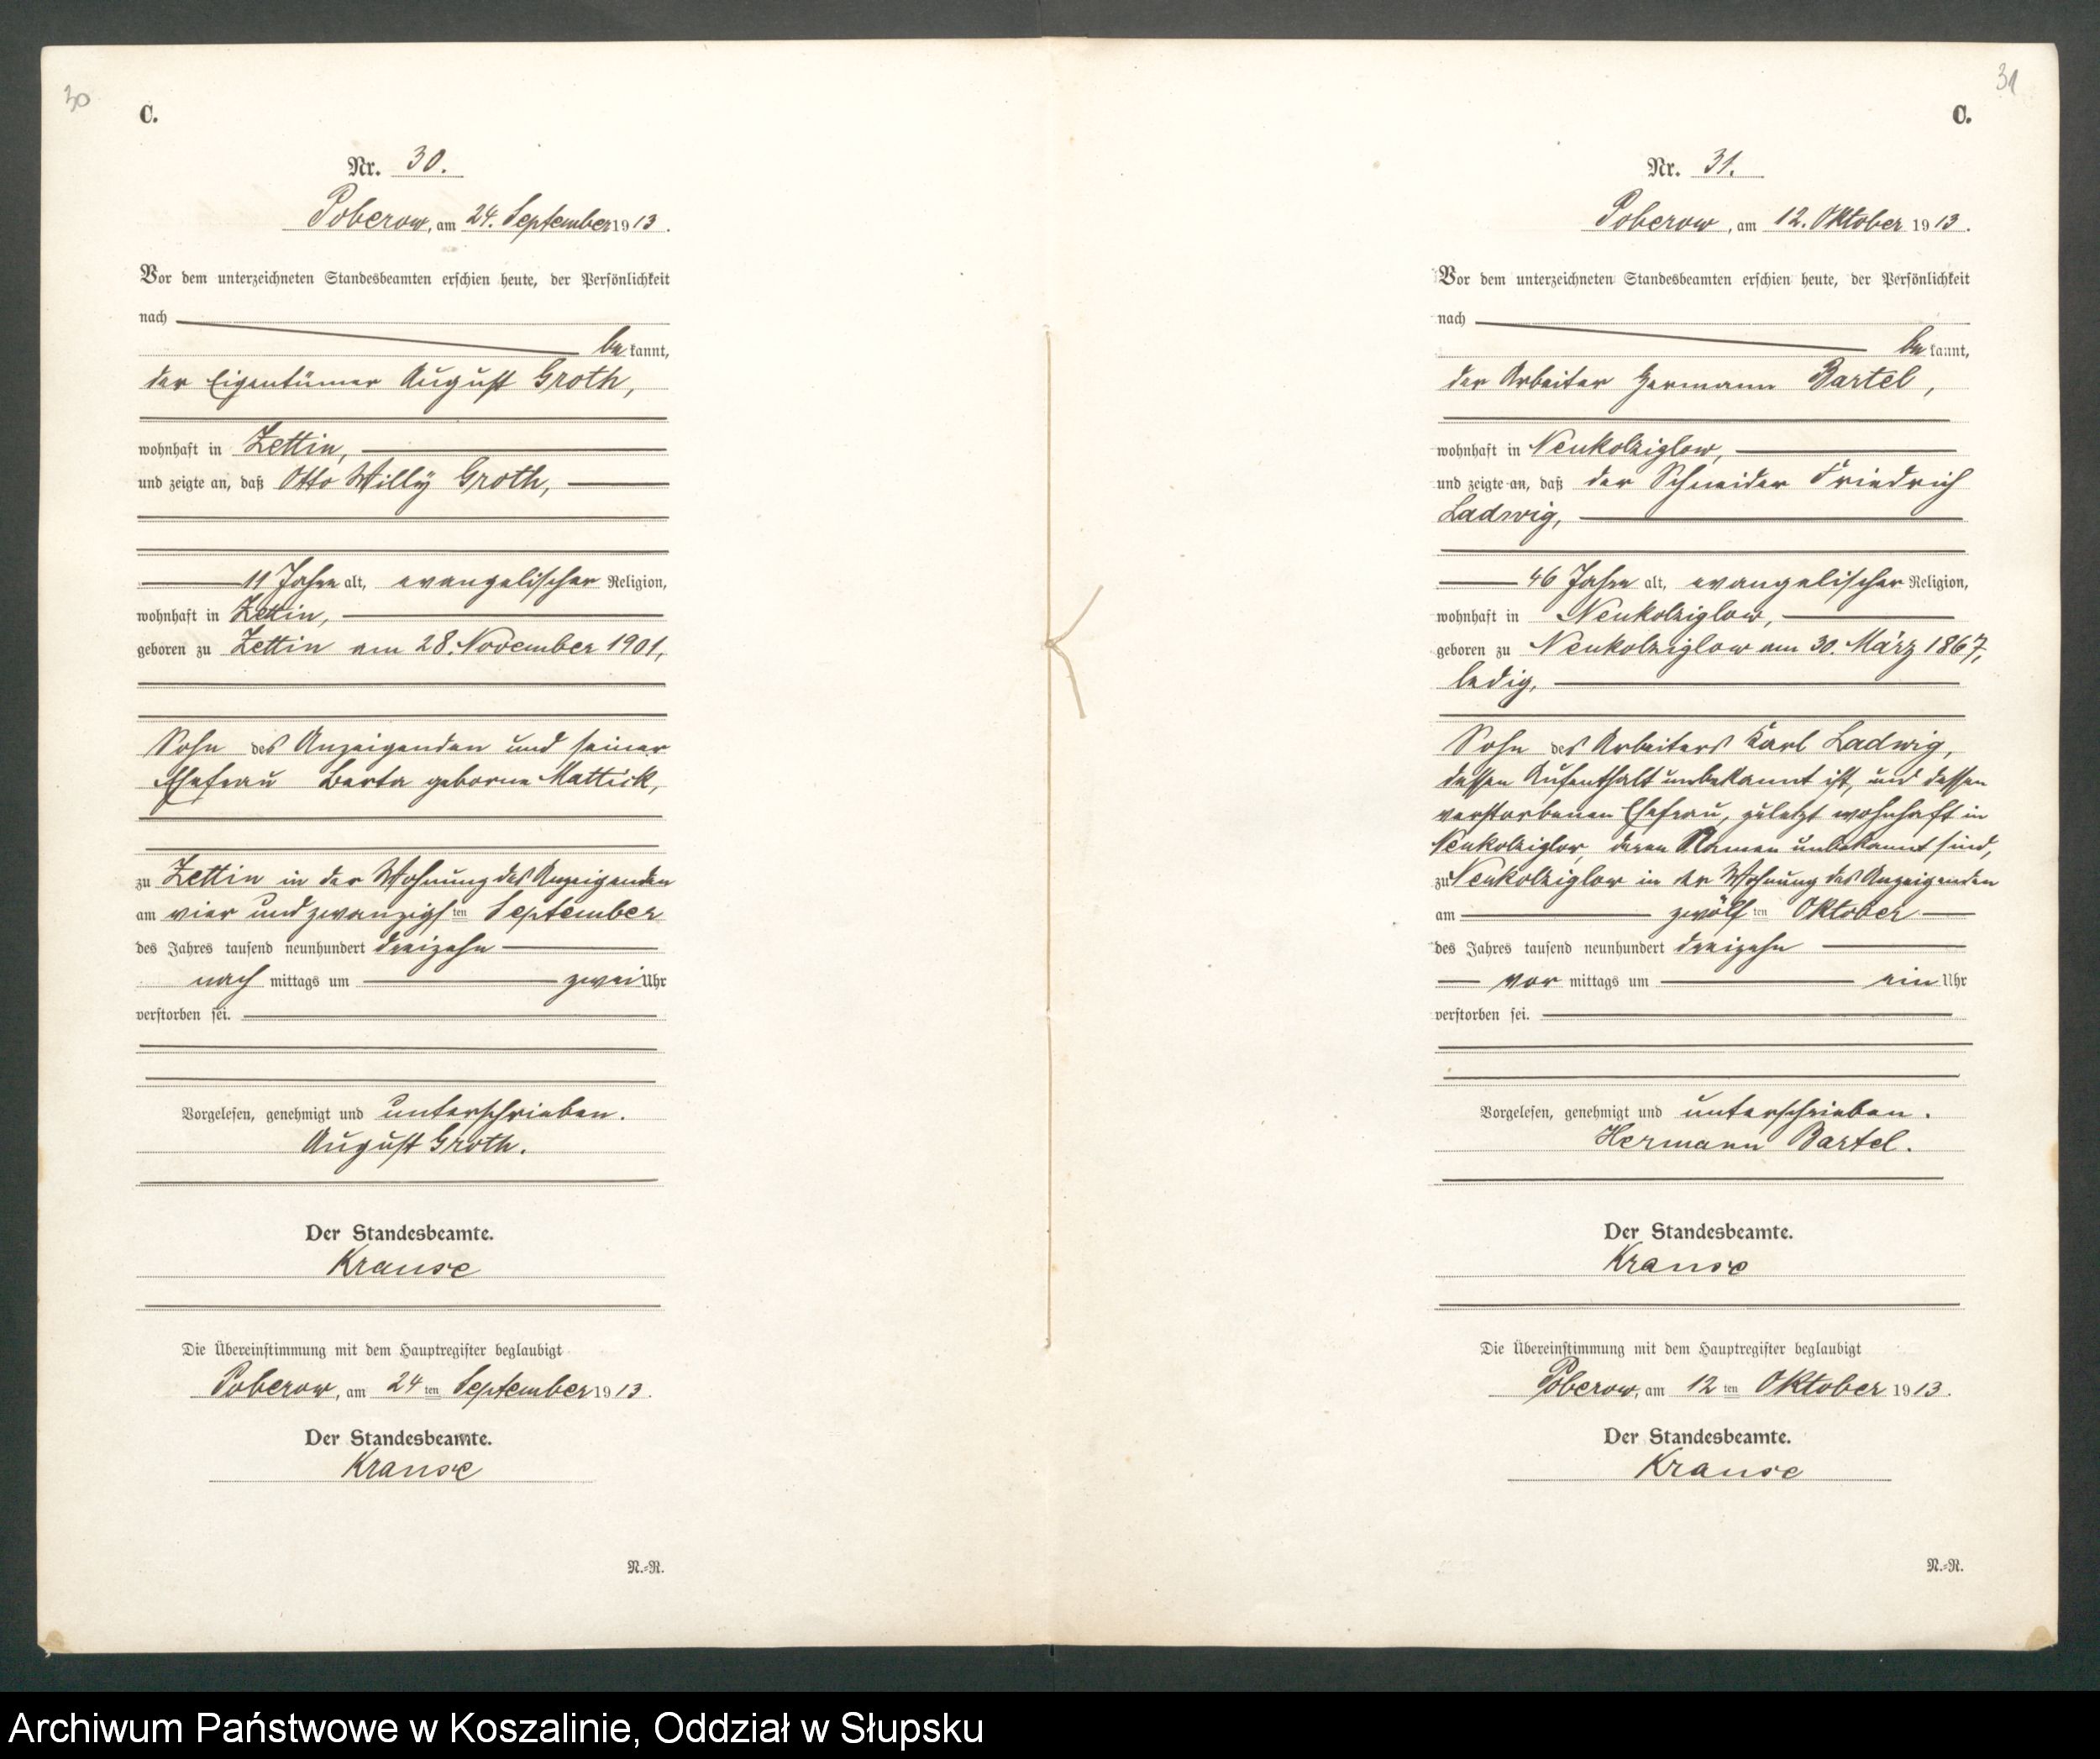 30
C.
Nr. 30.
Poberow, am 24. September 1913.
Vor dem unterzeichneten Standesbeamten erschien heute, der Persönlichkeit
nach
bekannt,
der Eigentümer August Groth,
wohnhaft in Zettin,
und zeigte an, daß Otto Willy Groth,
11 Jahre alt, evangelischer Religion,
wohnhaft in Zettin,
geboren zu Zettin am 28. November 1901,
Sohn des Anzeigenden und seiner
Ehefrau Berta geborne Mattick,
zu Zettin in der Wohnung des Anzeigenden
am vier und zwanzigsten September
des Jahres tausend neunhundert dreizehn
nach mittags um zwei Uhr
verstorben sei.
Vorgelesen, genehmigt und unterschrieben.
August Groth.
Der Standesbeamte.
Krause
Die Übereinstimmung mit dem Hauptregister beglaubigt
Poberow, am 24ten September 1913.
Der Standesbeamte.
Krause
N.-R.
31
C.
Nr. 31.
Poberow, am 12. Oktober 1913.
Vor dem unterzeichneten Standesbeamten erschien heute, der Persönlichkeit
nach
bekannt,
der Arbeiter Hermann Bartel,
wohnhaft in Neukolziglow,
und zeigte an, daß der Schneider Friedrich
Ladwig,
46 Jahre alt, evangelischer Religion,
wohnhaft in Neukolziglow,
geboren zu Neukolziglow am 30. März 1867,
ledig,
Sohn des Arbeiters Karl Ladwig,
dessen Aufenthalt unbekannt ist, und dessen
verstorbenen Ehefrau, zuletzt wohnhaft in
Neukolziglow, deren Namen unbekannt sind,
zu Neukolziglow in der Wohnung des Anzeigenden
am zwölften Oktober
des Jahres tausend neunhundert dreizehn
vor mittags um ein Uhr
verstorben sei.
Vorgelesen, genehmigt und unterschrieben.
Hermann Bartel.
Der Standesbeamte.
Krause
Die Übereinstimmung mit dem Hauptregister beglaubigt
Poberow, am 12ten Oktober 1913.
Der Standesbeamte.
Krause
N.-R.
Archiwum Państwowe w Koszalinie, Oddział w Słupsku